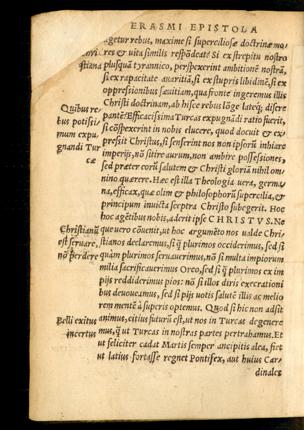 ERASMI EPISTOLA
agetur rebus, maxime si superciliosæ doctrinæ mo-
res & uita similis respōdeat? Si ex strepitu nostro
plusquā tyrannico, perspexerint ambitionē nostrā,
si ex rapacitate auaritiā, si ex stupris libidinē, si ex
oppressionibus sæuitiam, qua fronte ingeremus illis
Christi doctrinam, ab hisce rebus lōge lateq; discre
Quibus re
bus potissi
mum expu
gnandi Tur
cæ
pantē? Efficacissima Turcas expugnādi ratio fuerit,
si cōspexerint in nobis elucere, quod docuit & ex-
pressit Christus, si senserint nos non ipsorū inhiare
imperijs, nō sitire aurum, non ambire possessiones,
sed præter eorū salutem & Christi gloriā nihil om-
nino quærere. Hæc est illa Theologia uera, germa-
na, efficax, quæ olim & philosophorū supercilia, &
principum inuicta sceptra Christo subegerit. Hoc
hoc agētibus nobis, aderit ipse CHRISTVS. Ne
Christianū
est seruare,
nō perdere
que uero cōuenit, ut hoc argumēto nos ualde Chri-
stianos declaremus, si q̄ plurimos occiderimus, sed si
quàm plurimos seruauerimus, nō si multa impiorum
milia sacrificauerimus Orco, sed si q̄ plurimos ex im
pijs reddiderimus pios: nō si illos diris execrationi
bus deuoueamus, sed si pijs uotis salutē illis ac melio
rem mentē à superis optemus. Quod si hic non adsit
Belli exitus
incertus
animus, citius futurū est, ut nos in Turcas degenere
mus, q̄ ut Turcas in nostras partes pertrahamus. Et
ut feliciter cadat Martis semper ancipitis alea, fiet
ut latius fortasse regnet Pontifex, aut huius Car-
dinales